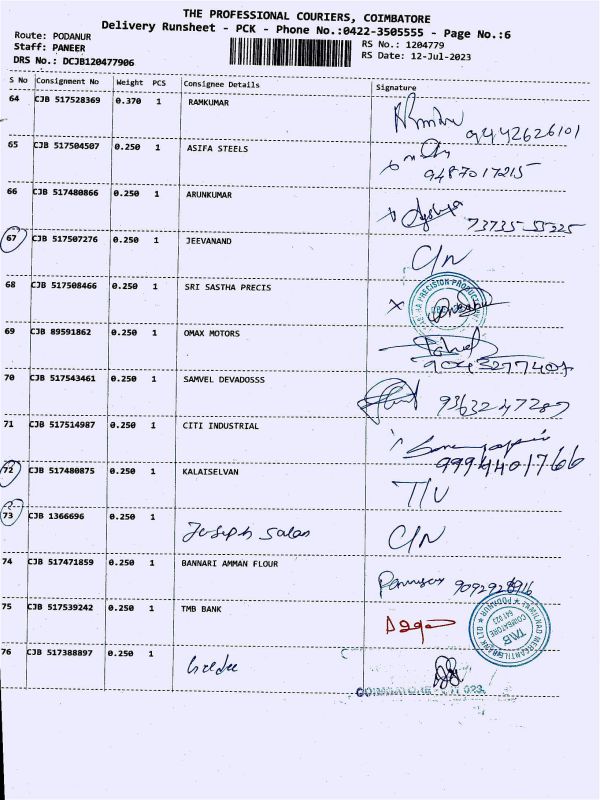 THE PROFESSIONAL COURIERS, COIMBATORE
Delivery Runsheet - PCK - Phone No.:0422-3505555 - Page No.:6
Route: PODANUR
RS No.: 1204779
Staff: PANEER
RS Date: 12-Jul-2023
DRS No.: DCJB120477906
S No Consignment No Weight PCS Consignee Details Signature
64 CJB 517528369 0.370 1 RAMKUMAR
9442626101
65 CJB 517504507 0.250 1 ASIFA STEELS
9487017215
66 CJB 517480866 0.250 1 ARUNKUMAR
73735-55325
67 CJB 517507276 0.250 1 JEEVANAND
C/N
68 CJB 517508466 0.250 1 SRI SASTHA PRECIS
X
PRECISION PRODUC
69 CJB 89591862 0.250 1 OMAX MOTORS
70 CJB 517543461 0.250 1 SAMVEL DEVADOSSS
9363247287
71 CJB 517514987 0.250 1 CITI INDUSTRIAL
9994401766
72 CJB 517480875 0.250 1 KALAISELVAN
T/U
73 CJB 1366696 0.250 1 Joseph Sales
C/N
74 CJB 517471859 0.250 1 BANNARI AMMAN FLOUR
75 CJB 517539242 0.250 1 TMB BANK
TAMILNAD MERCANTILE BANK LTD
PODANUR
COIMBATORE
641 023
76 CJB 517388897 0.250 1
COIMBATORE - 641 023